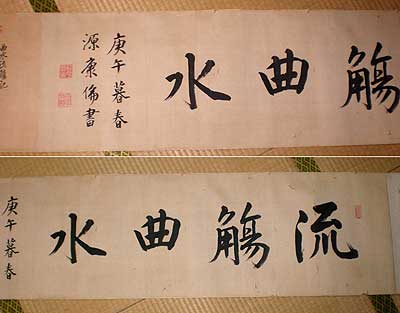 觴曲水
庚午暮春
源倫書
流觴曲水
庚午暮春